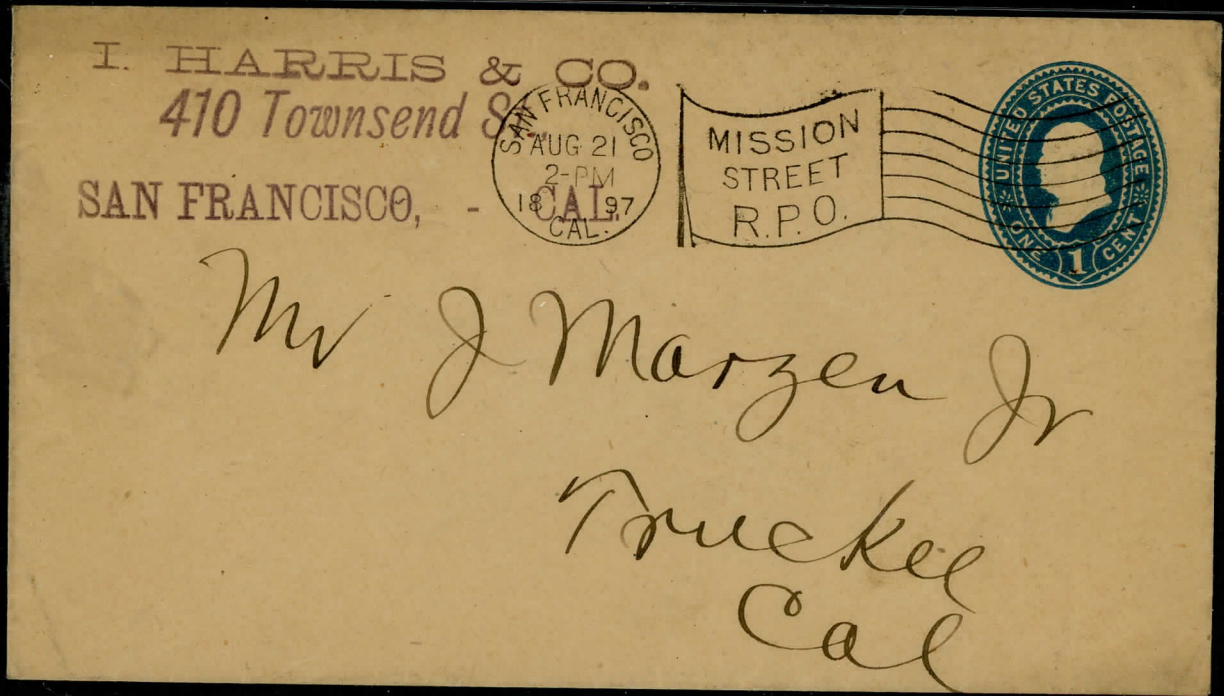 I. HARRIS & CO.
410 Townsend St.
SAN FRANCISCO, - CAL.
SAN FRANCISCO
AUG 21
2-PM
1897
CAL.
MISSION
STREET
R.P.O.
UNITED STATES POSTAGE
ONE 1 CENT
Mr J Marzen Jr
Truckee
Cal